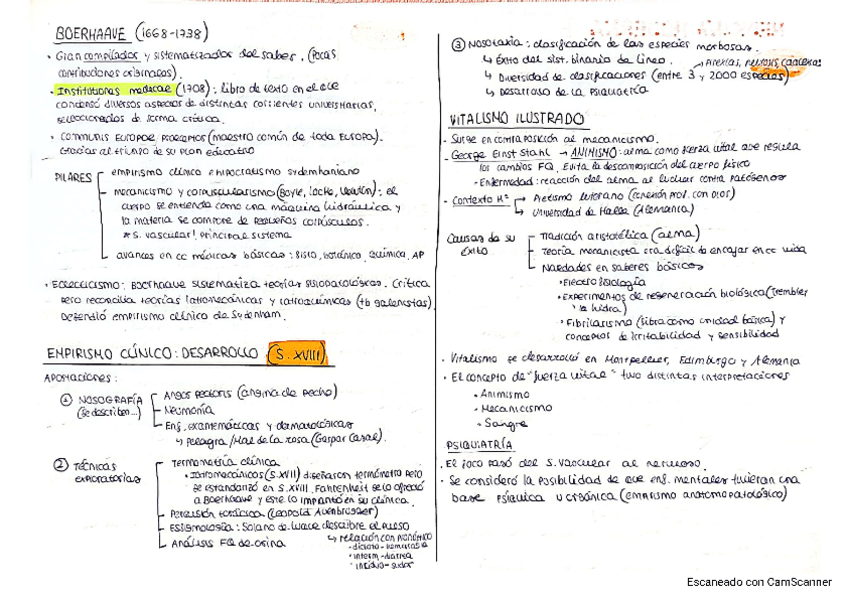 BOERHAAVE (1668-1738)
· Gran compilador y sistematizador del saber. (Pocas
contribuciones originales).
· Institutiones medicae (1708): libro de texto en el que
condensó diversos aspectos de distintas corrientes universitarias,
seleccionados de forma crítica.
· COMMUNIS EUROPAE PRAECEPTOR (maestro común de toda EUROPA).
Gracias al triunfo de su plan educativo
PILARES
empirismo clínico e hipocratismo sydenhamiano
mecanicismo y corpuscularismo (Boyle, Locke, Newton): el
cuerpo se entiende como una máquina hidráulica y
la materia se compone de pequeños corpúsculos.
* S. vascular: principal sistema
avances en cc médicas básicas: fisio, botánica, química, AP
· ECLECTICISMO: BOERHAAVE sistematiza teorías fisiopatológicas. Critica
pero reconcilia teorías iatromecánicas y iatroquímicas (tb galenistas).
Defendió empirismo clínico de Sydenham.
EMPIRISMO CLÍNICO: DESARROLLO (S. XVIII)
APORTACIONES:
① NOSOGRAFÍA
(Se describen...)
Angor pectoris (angina de pecho)
Neumonía
Enf. exantemáticas y dermatológicas
↳ Pelagra/Mal de la rosa (Gaspar Casal).
② TÉCNICAS
exploratorias
Termometría clínica
· Iatromecánicos (S.XVII) diseñaron termómetro pero
se estandarizó en S. XVIII. Fahrenheit se lo ofreció
a Boerhaave y este lo implantó en su clínica.
Percusión torácica (Leopold Auenbrugger)
Esfigmología: Solano de Luque describe el pulso
↳ relación con pronóstico
- dícroto - hemorragia
- interm. - diarrea
- incíduo - sudor
Análisis FQ de orina
③ NOSOTAXIA: clasificación de las especies morbosas.
↳ Éxito del sist. binario de Lineo.
→ Pirexias, neurosis, caquexias
↳ Diversidad de clasificaciones (entre 3 y 2000 especies)
↳ Desarrollo de la PSIQUIATRÍA
VITALISMO ILUSTRADO
· Surge en contraposición al mecanicismo.
· George Ernst Stahl → ANIMISMO: alma como fuerza vital que regula
los cambios FQ. Evita la descomposición del cuerpo físico
· Enfermedad: reacción del alma al luchar contra patógenos
· Contexto Hº
→ Pietismo luterano (conexión prof. con DIOS)
↳ Universidad de Halle (Alemania)
Causas de su
éxito
Tradición aristotélica (alma)
Teoría mecanicista era difícil de encajar en cc vida
Novedades en saberes básicos
· Electrofisiología
· Experimentos de regeneración biológica (Trembley
y la hidra)
· Fibrilarismo (fibra como unidad básica) y
conceptos de irritabilidad y sensibilidad
· Vitalismo se desarrolló en Montpellier, Edimburgo y Alemania
· El concepto de "fuerza vital" tuvo distintas interpretaciones
· Animismo
· Mecanicismo
· Sangre
PSIQUIATRÍA
· El foco pasó del S. vascular al nervioso.
· Se consideró la posibilidad de que enf. mentales tuvieran una
base psíquica u orgánica (empirismo anatomopatológico)
Escaneado con CamScanner